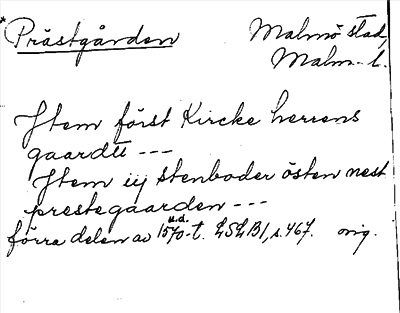 Prästgården Malmö stad,
Malm. l.
Item först Kircke herrens
gaardt ---
Item iij stenboder östen nest
prestegaarden ---
u.d.
förra delen av 1570-t. LSLB1, s. 467. orig.